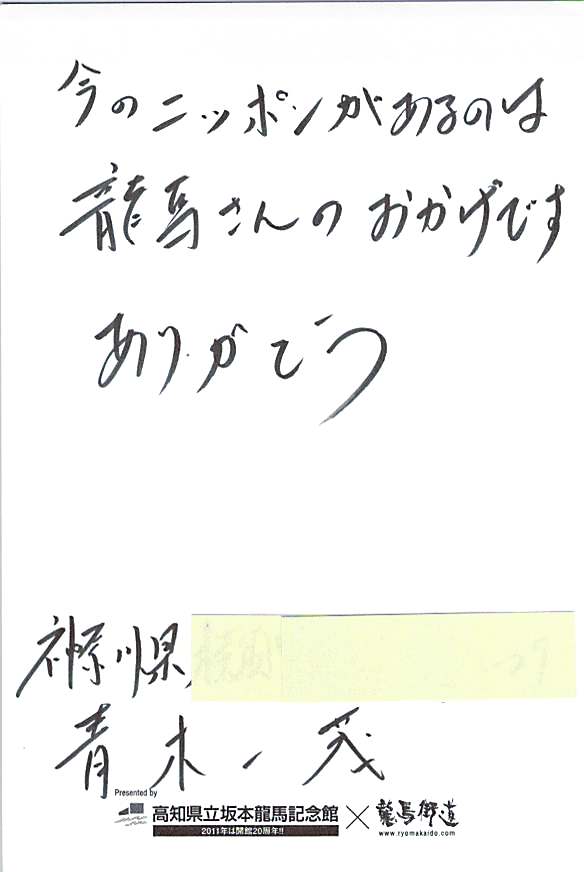 今のニッポンがあるのは
龍馬さんのおかげです
ありがとう
神奈川県
青木一茂
Presented by
高知県立坂本龍馬記念館
2011年は開館20周年!!
×
龍馬街道
www.ryomakaido.com